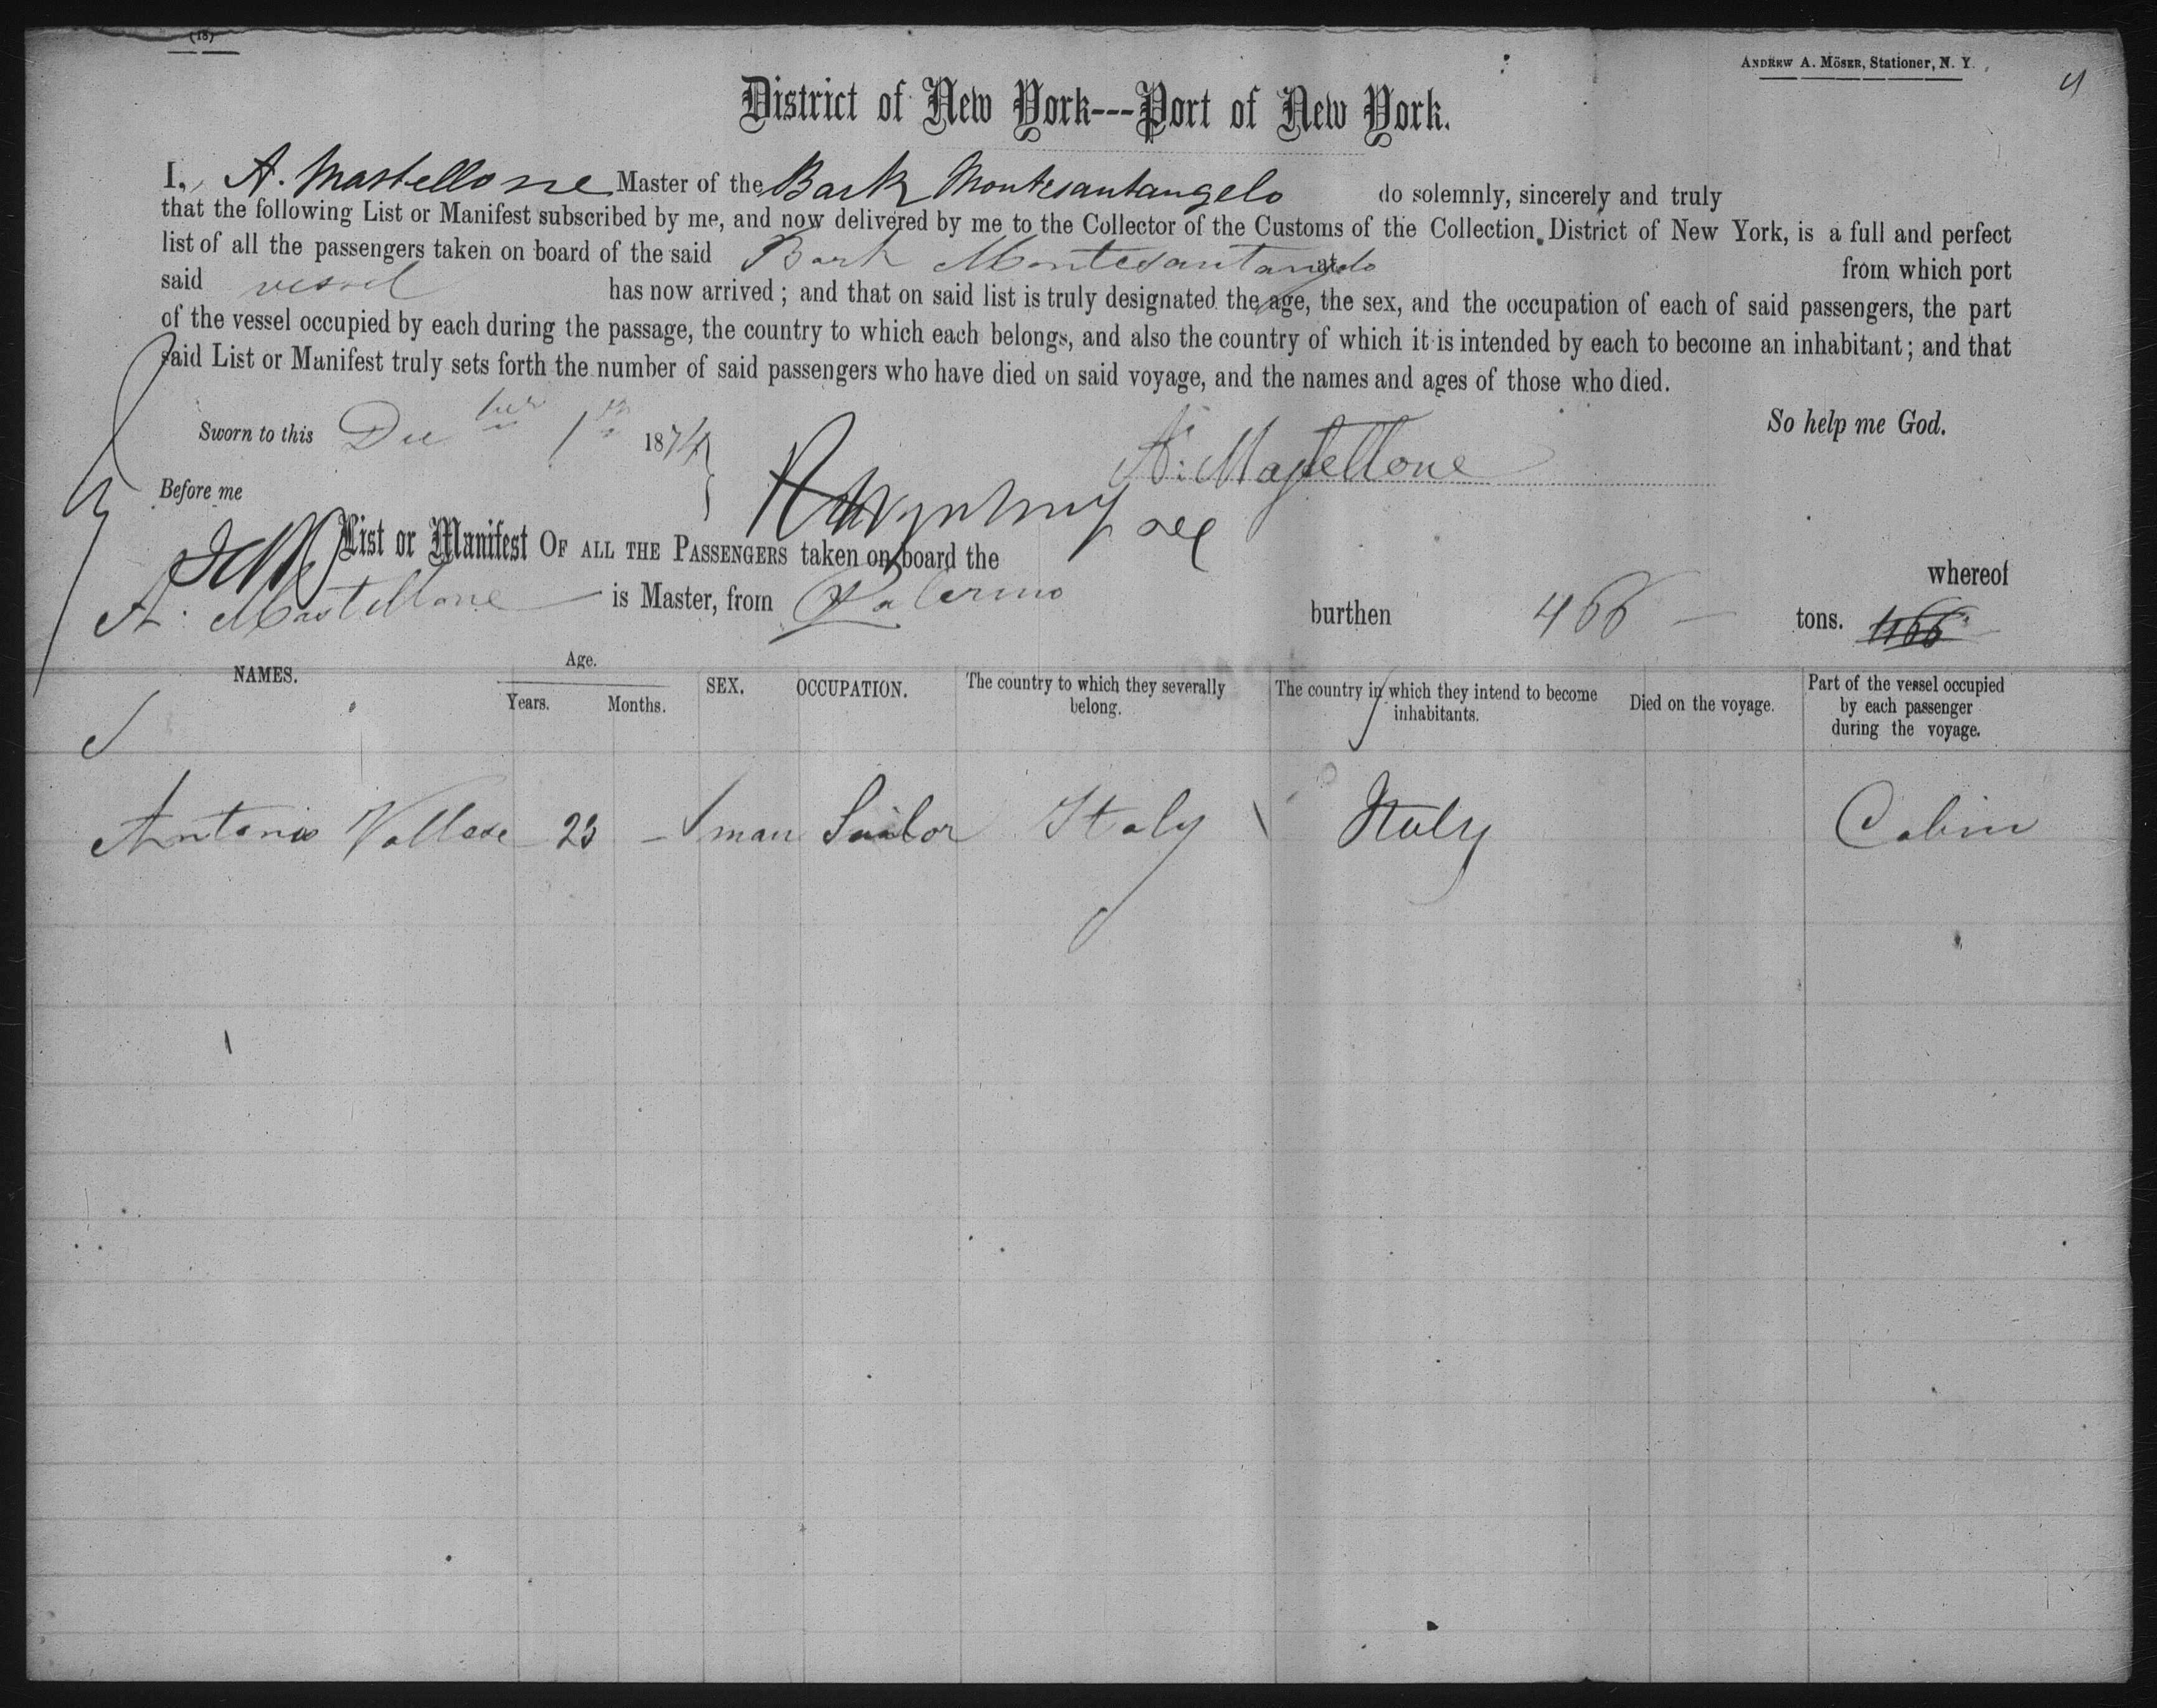 (18)
ANDREW A. MÖSER, Stationer, N. Y.
District of New York---Port of New York.
I, A. Mastellone Master of the Bark Montesantangelo do solemnly, sincerely and truly
that the following List or Manifest subscribed by me, and now delivered by me to the Collector of the Customs of the Collection District of New York, is a full and perfect
list of all the passengers taken on board of the said Bark Montesantangelo at from which port
said vessel has now arrived; and that on said list is truly designated the age, the sex, and the occupation of each of said passengers, the part
of the vessel occupied by each during the passage, the country to which each belongs, and also the country of which it is intended by each to become an inhabitant; and that
said List or Manifest truly sets forth the number of said passengers who have died on said voyage, and the names and ages of those who died.
So help me God.
Sworn to this Dec ber 1st 1874
A. Mastellone
Before me
List or Manifest OF ALL THE PASSENGERS taken on board the whereof
A. Mastellone is Master, from Palermo burthen 466 tons. 466
NAMES. Age. Years. Months. SEX. OCCUPATION. The country to which they severally belong. The country in which they intend to become inhabitants. Died on the voyage. Part of the vessel occupied by each passenger during the voyage.
Antonio Vallese 23 - man Sailor Italy Italy Cabin